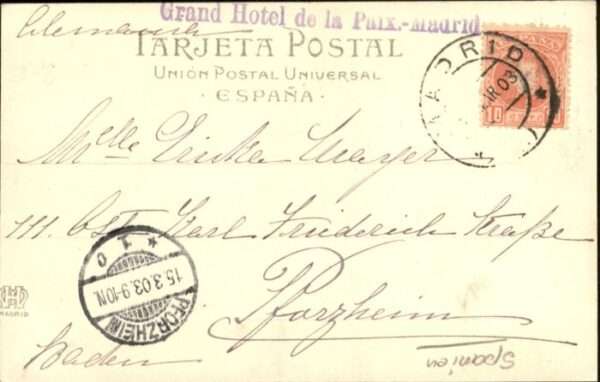 Grand Hotel de la Paix.-Madrid
Alemania
TARJETA POSTAL
UNIÓN POSTAL UNIVERSAL
· ESPAÑA ·
MADRID
MAR 03
10
Mlle Erika Mayer
111. Ost. Karl Friederich Straße
Pforzheim
Baden
PFORZHEIM
15.3.03.9-10N.
* 1 0
MADRID
Spanien